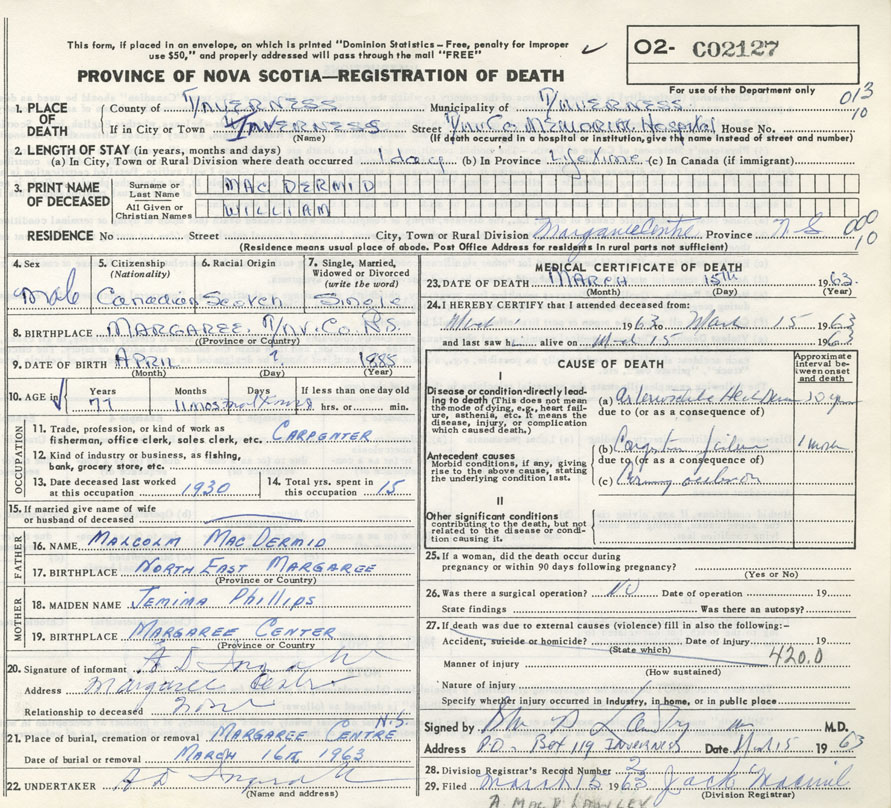 This form, if placed in an envelope, on which is printed "Dominion Statistics – Free, penalty for improper
use $50," and properly addressed will pass through the mail "FREE"
O2- C02127
PROVINCE OF NOVA SCOTIA—REGISTRATION OF DEATH
For use of the Department only
013
10
1. PLACE OF DEATH
County of INVERNESS Municipality of INVERNESS
If in City or Town INVERNESS Street Inv. Co MEMORIAL Hospital House No.
(Name) (If death occurred in a hospital or institution, give the name instead of street and number)
2. LENGTH OF STAY (in years, months and days)
(a) In City, Town or Rural Division where death occurred 1 day (b) In Province Lifetime (c) In Canada (if immigrant)
3. PRINT NAME OF DECEASED
Surname or Last Name MAC DERMID
All Given or Christian Names WILLIAM
RESIDENCE No Street City, Town or Rural Division Margaree Centre Province N S
000
10
(Residence means usual place of abode. Post Office Address for residents in rural parts not sufficient)
4. Sex
Male
5. Citizenship
(Nationality)
Canadian
6. Racial Origin
Scotch
7. Single, Married,
Widowed or Divorced
(write the word)
Single
8. BIRTHPLACE MARGAREE, INV. Co N.S.
(Province or Country)
9. DATE OF BIRTH APRIL ? 1885
(Month) (Day) (Year)
10. AGE in Years Months Days If less than one day old
77 11 mos hrs. or min.
OCCUPATION
11. Trade, profession, or kind of work as
fisherman, office clerk, sales clerk, etc. CARPENTER
12. Kind of industry or business, as fishing,
bank, grocery store, etc.
13. Date deceased last worked
at this occupation 1930
14. Total yrs. spent in
this occupation 15
15. If married give name of wife
or husband of deceased
FATHER
16. NAME MALCOLM MAC DERMID
17. BIRTHPLACE NORTH EAST MARGAREE
(Province or Country)
MOTHER
18. MAIDEN NAME JEMIMA PHILLIPS
19. BIRTHPLACE MARGAREE CENTER
(Province or Country)
20. Signature of informant
Address Margaree Centre
Relationship to deceased None
21. Place of burial, cremation or removal MARGAREE CENTRE N.S.
Date of burial or removal MARCH 16th, 1963
22. UNDERTAKER
(Name and address)
MEDICAL CERTIFICATE OF DEATH
23. DATE OF DEATH MARCH 15th 1963
(Month) (Day) (Year)
24. I HEREBY CERTIFY that I attended deceased from:
1963 to March 15 1963
and last saw h alive on 15 1963
CAUSE OF DEATH
Approximate
interval be-
tween onset
and death
I
Disease or condition directly lead-
ing to death (This does not mean
the mode of dying, e.g., heart fail-
ure, asthenia, etc. It means the
disease, injury, or complication
which caused death.)
(a) 10 years
due to (or as a consequence of)
Antecedent causes
Morbid conditions, if any, giving
rise to the above cause, stating
the underlying condition last.
(b) 1
due to (or as a consequence of)
(c)
II
Other significant conditions
contributing to the death, but not
related to the disease or condi-
tion causing it.
25. If a woman, did the death occur during
pregnancy or within 90 days following pregnancy?
(Yes or No)
26. Was there a surgical operation? No Date of operation 19
State findings Was there an autopsy?
27. If death was due to external causes (violence) fill in also the following:-
Accident, suicide or homicide? Date of injury 19
(State which)
420.0
Manner of injury
(How sustained)
Nature of injury
Specify whether injury occurred in Industry, in home, or in public place
Signed by M.D.
Address P.O. Box 119 INVERNESS Date 15 1963
28. Division Registrar's Record Number 2
29. Filed March 1963 Jack
(Division Registrar)